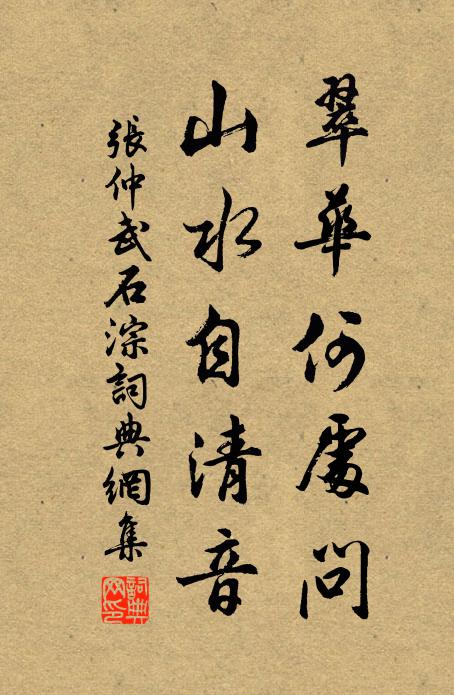 翠華何處問
山水自清音
張仲武石淙詞典網集
詞典网印